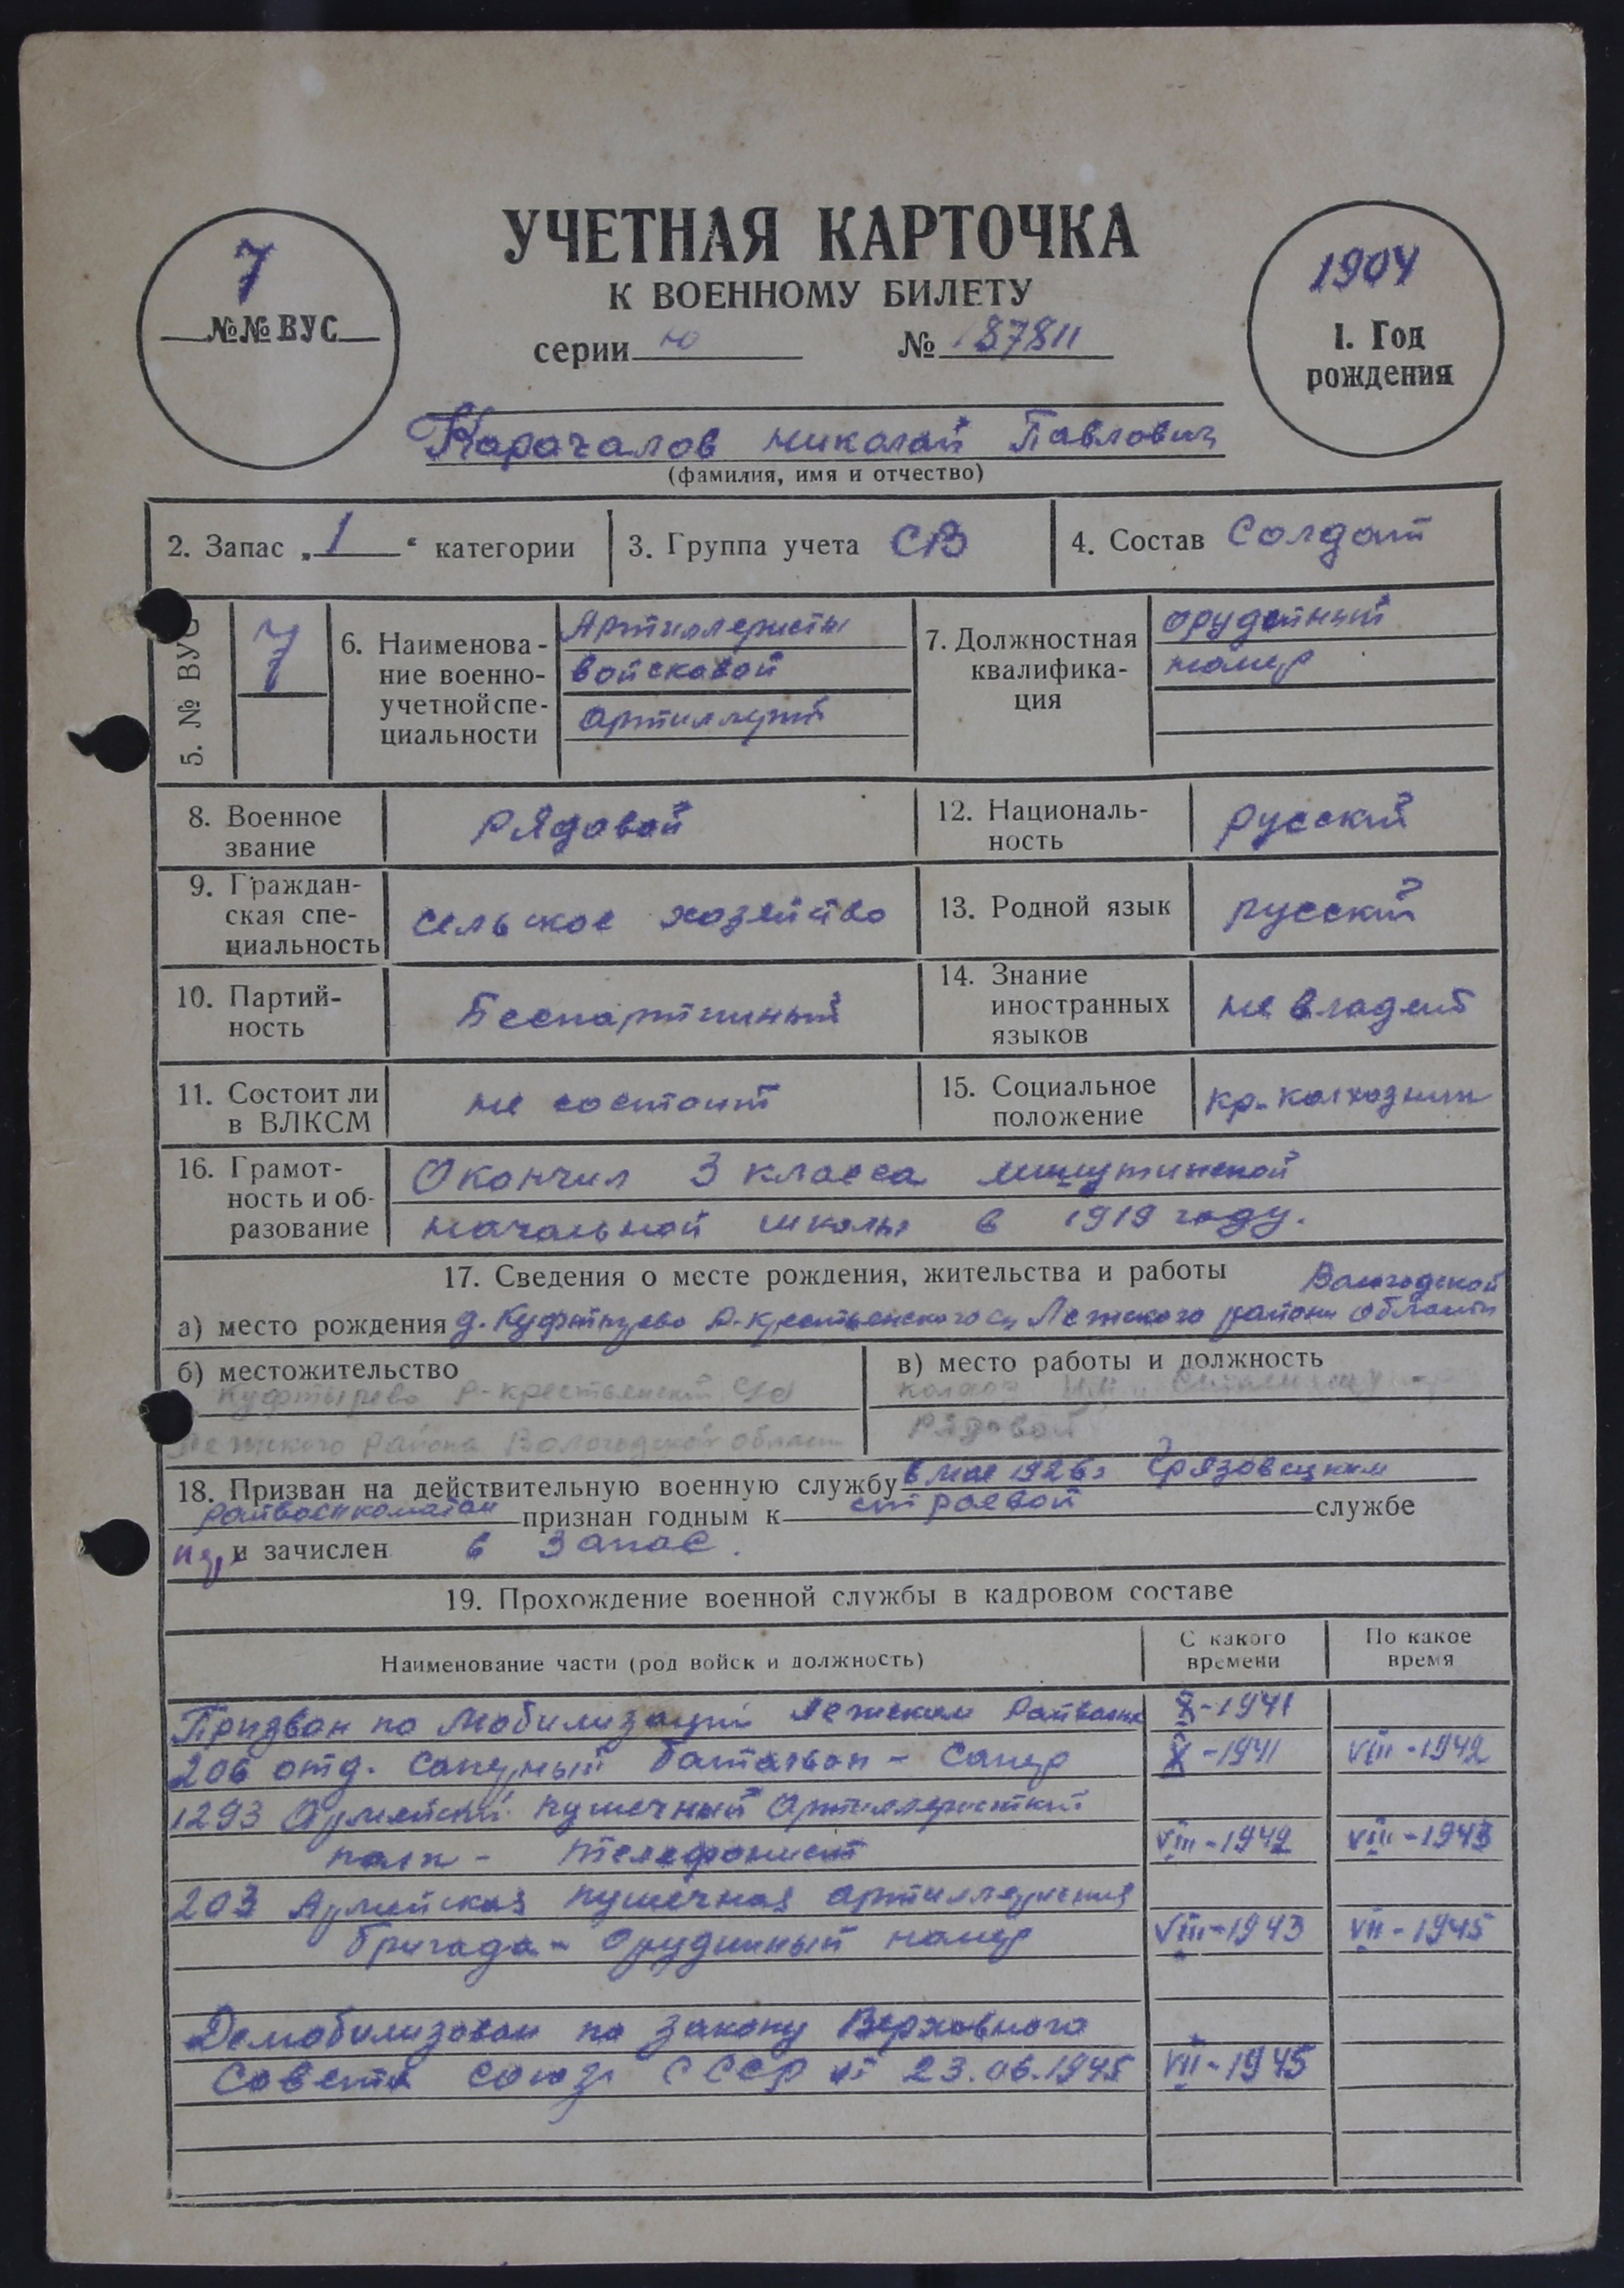 7
№№ ВУС
УЧЕТНАЯ КАРТОЧКА
К ВОЕННОМУ БИЛЕТУ
серии Ю № 187811
1904
1. Год
рождения
Карачалов Николай Павлович
(фамилия, имя и отчество)
2. Запас „1“ категории
3. Группа учета СВ
4. Состав Солдат
5. № ВУС
7
6. Наименова-
ние военно-
учетной спе-
циальности
Артиллеристы
войсковой
артиллерий
7. Должностная
квалифика-
ция
орудейный
номер
8. Военное
звание
Рядовой
12. Националь-
ность
русский
9. Граждан-
ская спе-
циальность
сельское хозяйство
13. Родной язык
русский
10. Партий-
ность
Беспартийный
14. Знание
иностранных
языков
не владеет
11. Состоит ли
в ВЛКСМ
не состоит
15. Социальное
положение
кр. колхозник
16. Грамот-
ность и об-
разование
Окончил 3 класса
начальной школы в 1919 году.
17. Сведения о месте рождения, жительства и работы
Вологодской
а) место рождения д. Куфтырево Р-крестьянского с/с Лежского района области
б) местожительство
Куфтырево Р-крестьянский
Лежского района Вологодской области
в) место работы и должность
колхоз
Рядовой
18. Призван на действительную военную службу в мае 1926г Грязовецким
Райвоенкоматом признан годным к строевой службе
и зачислен в запас.
19. Прохождение военной службы в кадровом составе
Наименование части (род войск и должность)
С какого
времени
По какое
время
Призван по Мобилизаций Лежским Райвоенк X-1941
206 отд. Саперный батальон - Сапер X-1941 VIII-1942
1293 Армейский пушечный Артиллеристкий
полк - телефонист VIII-1942 VIII-1943
203 Армейская пушечная артиллерийская
бригада - Орудийный номер VIII-1943 VII-1945
Демобилизован по закону Верховного
Совета Союза СССР от 23.06.1945 VII-1945